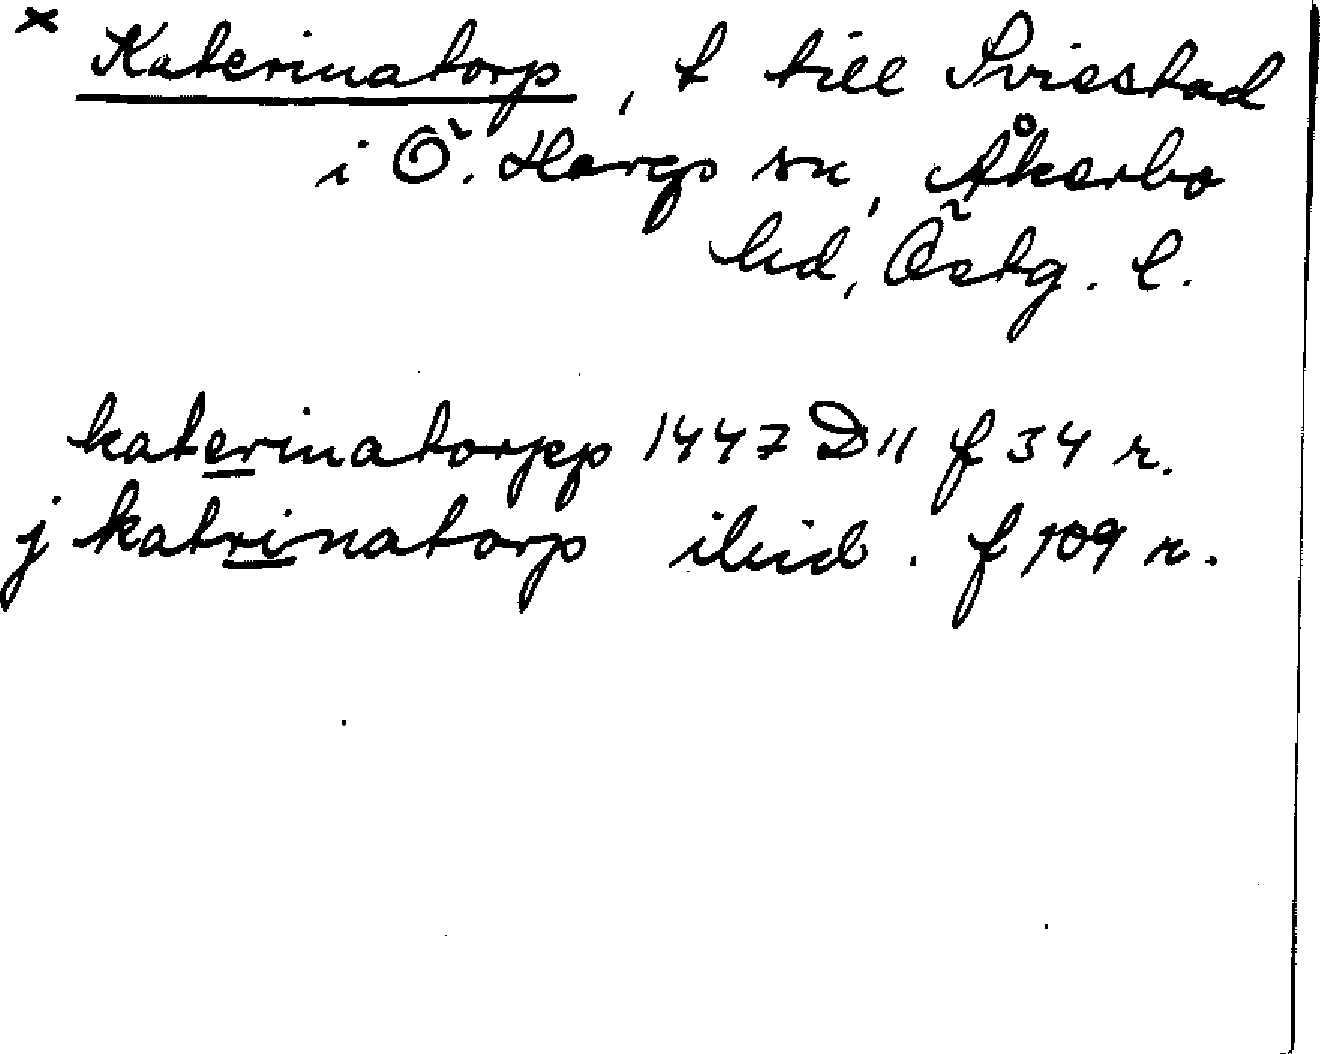 × Katerinatorp, t till Sviestad
i Ö. Hargs sn, Åkerbo
hd, Östg. l.
katerinatorpp 1447 D 11 f 34 r.
j katrinatorp ibid. f 109 r.